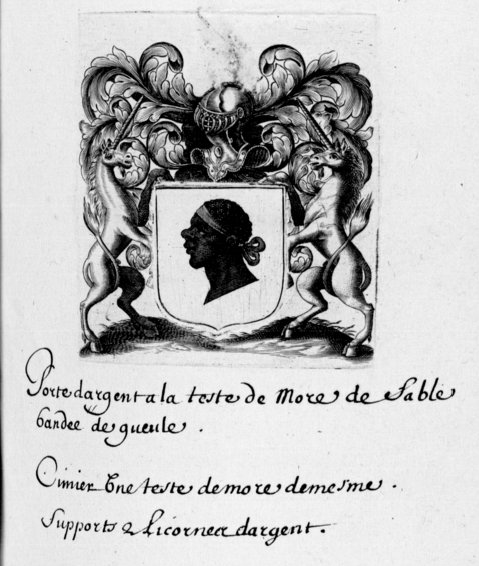 Porte dargent a la teste de More de Sable
bandee de gueule .
Cimier Vne teste de more de mesme .
Supports 2 Licornes dargent .